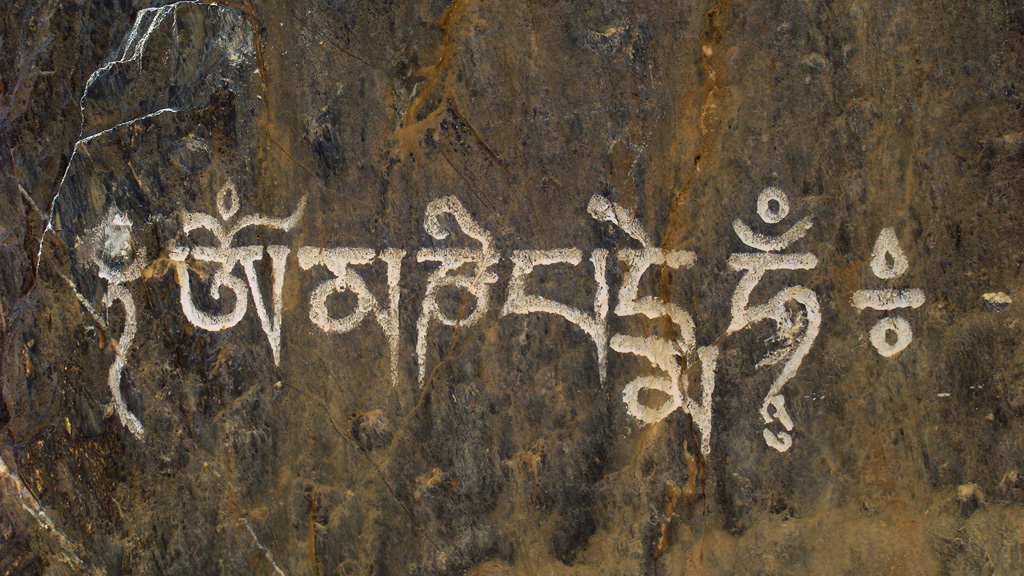 ༄ཨོཾམཎིཔདྨེཧཱུྃ༔